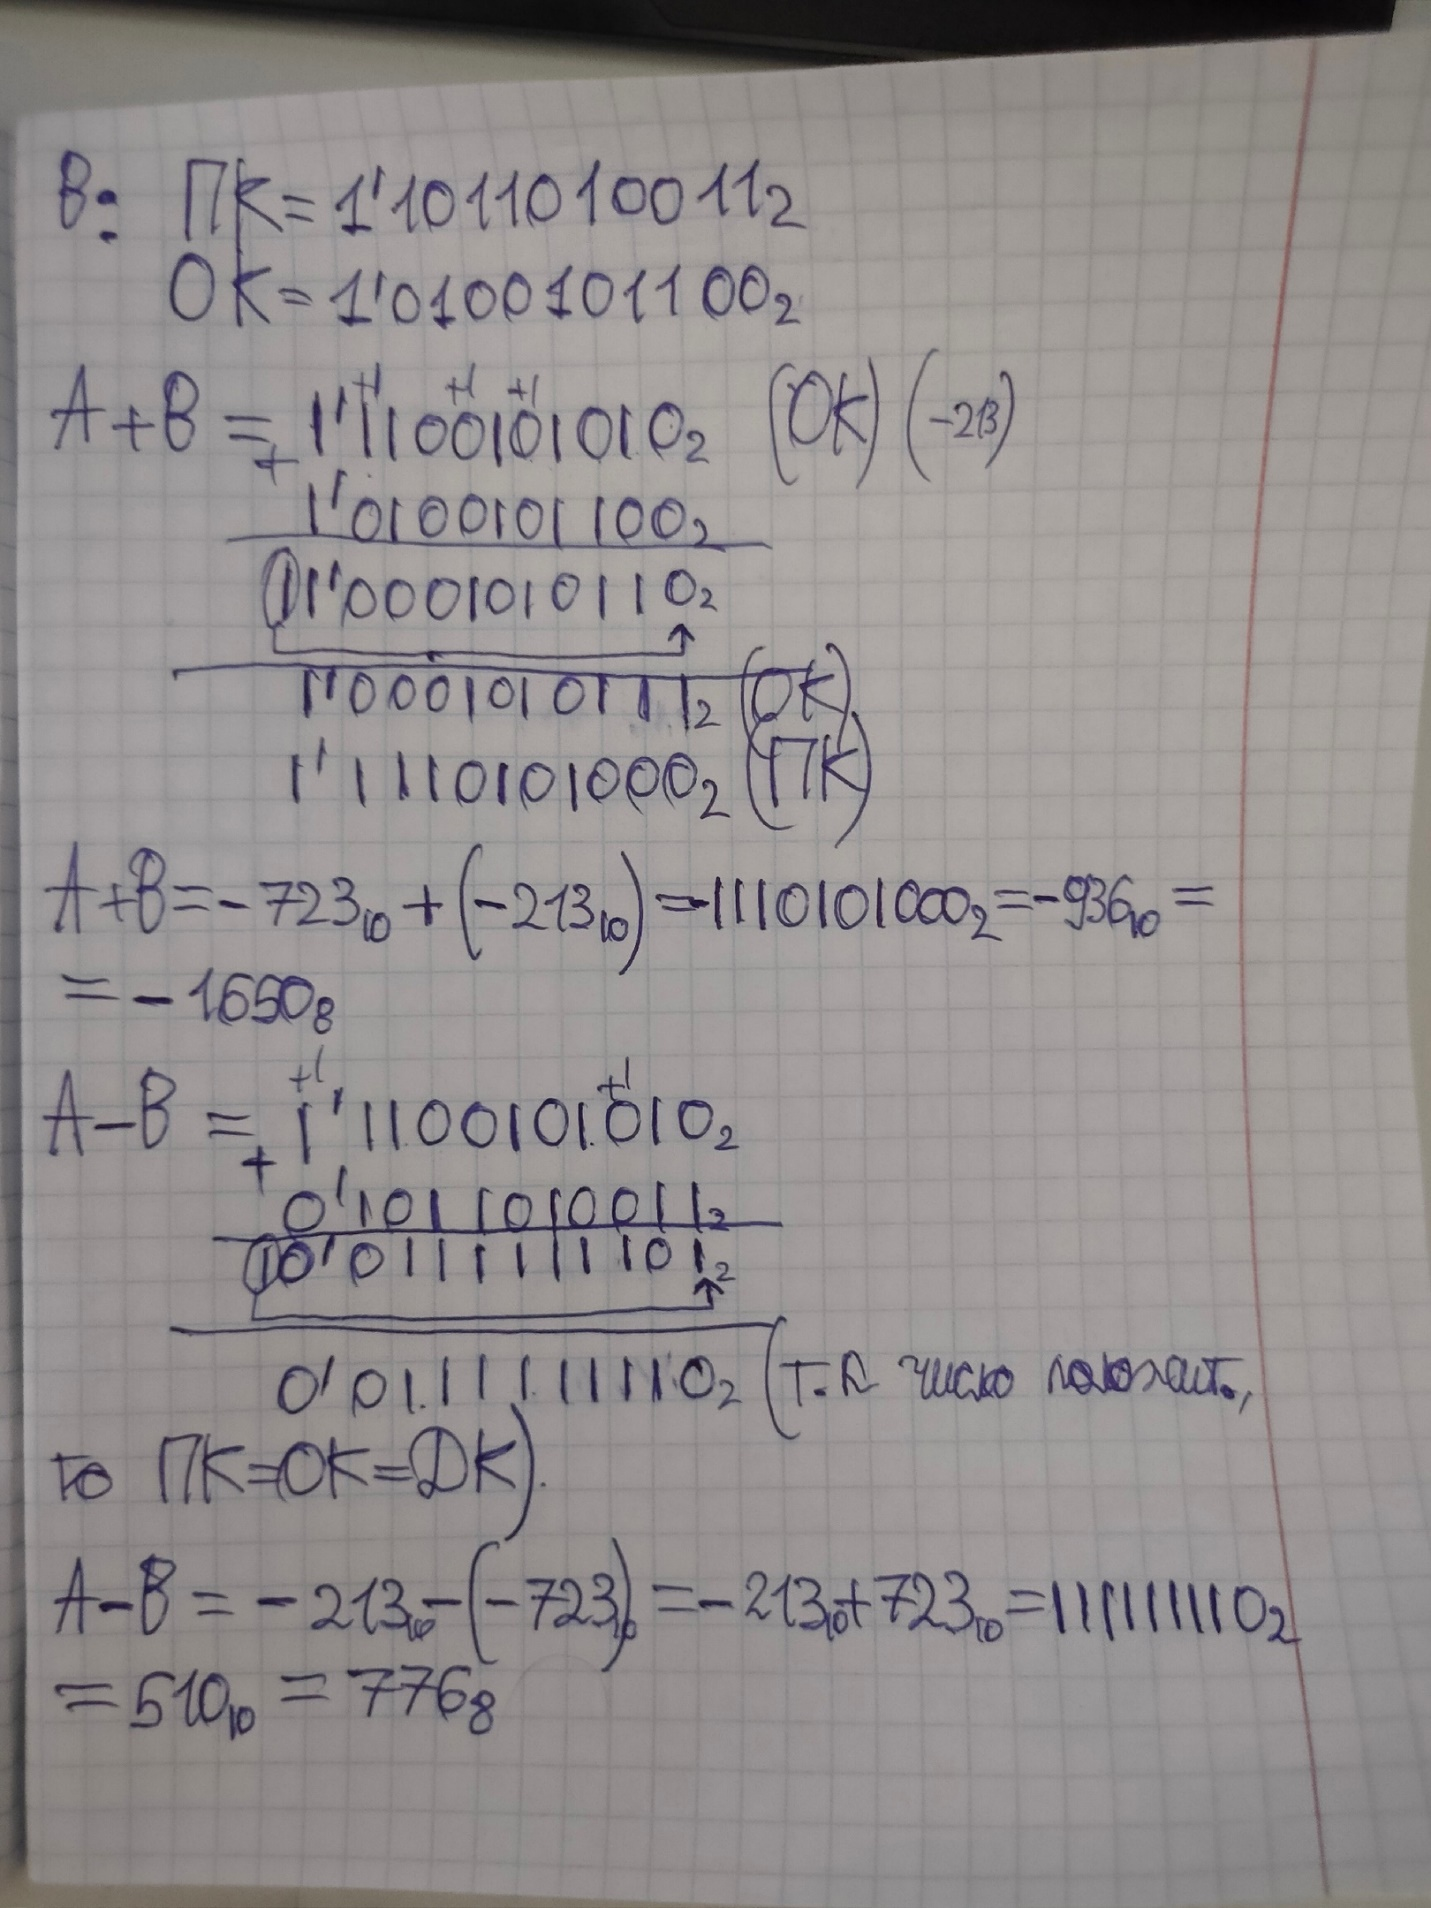 В: ПК=1'1011010011₂
ОК=1'0100101100₂
+1 +1 +1
А+В = 1'1100101010₂ (ОК) (-213)
+
1'0100101100₂
11'0001010110₂
1'0001010111₂ (ОК)
1'1110101000₂ (ПК)
А+В=-723₁₀+(-213₁₀)=-1110101000₂=-936₁₀=
=-1650₈
+1 +1
А-В = 1'1100101010₂
+
0'1011010011₂
10'0111111101₂
0'0111111110₂ (т.к число положит.,
то ПК=ОК=ДК).
А-В=-213₁₀-(-723₁₀)=-213₁₀+723₁₀=111111110₂
=510₁₀=776₈